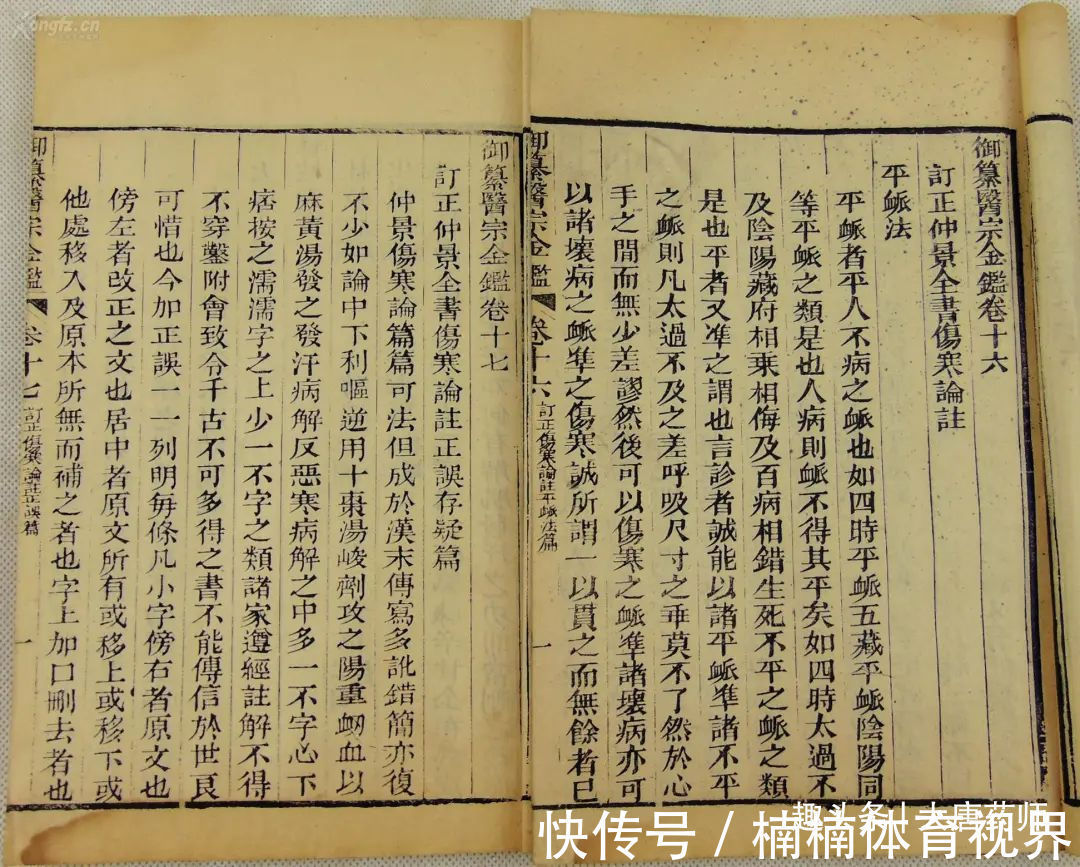 御纂醫宗金鑑卷十六
訂正仲景全書傷寒論註
平衇法
平衇者平人不病之衇也如四時平衇五藏平衇陰陽同
等平衇之類是也人病則衇不得其平矣如四時太過不
及陰陽藏府相乗相侮及百病相錯生死不平之衇之類
是也平者又凖之謂也言診者誠能以諸平衇凖諸不平
之衇則凡太過不及之差呼吸尺寸之乖莫不了然於心
手之間而無少差謬然後可以傷寒之衇凖諸壞病亦可
以諸壞病之衇凖之傷寒誠所謂一以貫之而無餘者已
御纂醫宗金鑑
卷十六
訂正傷寒論註平衇法篇
一
御纂醫宗金鑑卷十七
訂正仲景全書傷寒論註正誤存疑篇
仲景傷寒論篇篇可法但成於漢末傳寫多訛錯簡亦復
不少如論中下利嘔逆用十棗湯峻劑攻之陽重衂血以
麻黃湯發之發汗病解反惡寒病解之中多一不字心下
痞按之濡濡字之上少一不字之類諸家遵經註解不得
不穿鑿附會致令千古不可多得之書不能傳信於世良
可惜也今加正誤一一列明每條凡小字傍右者原文也
傍左者改正之文也居中者原文所有或移上或移下或
他處移入及原本所無而補之者也字上加口刪去者也
御纂醫宗金鑑
卷十七
訂正傷寒論註正誤篇
一
kongfz.cn
快传号 / 楠楠体育视界